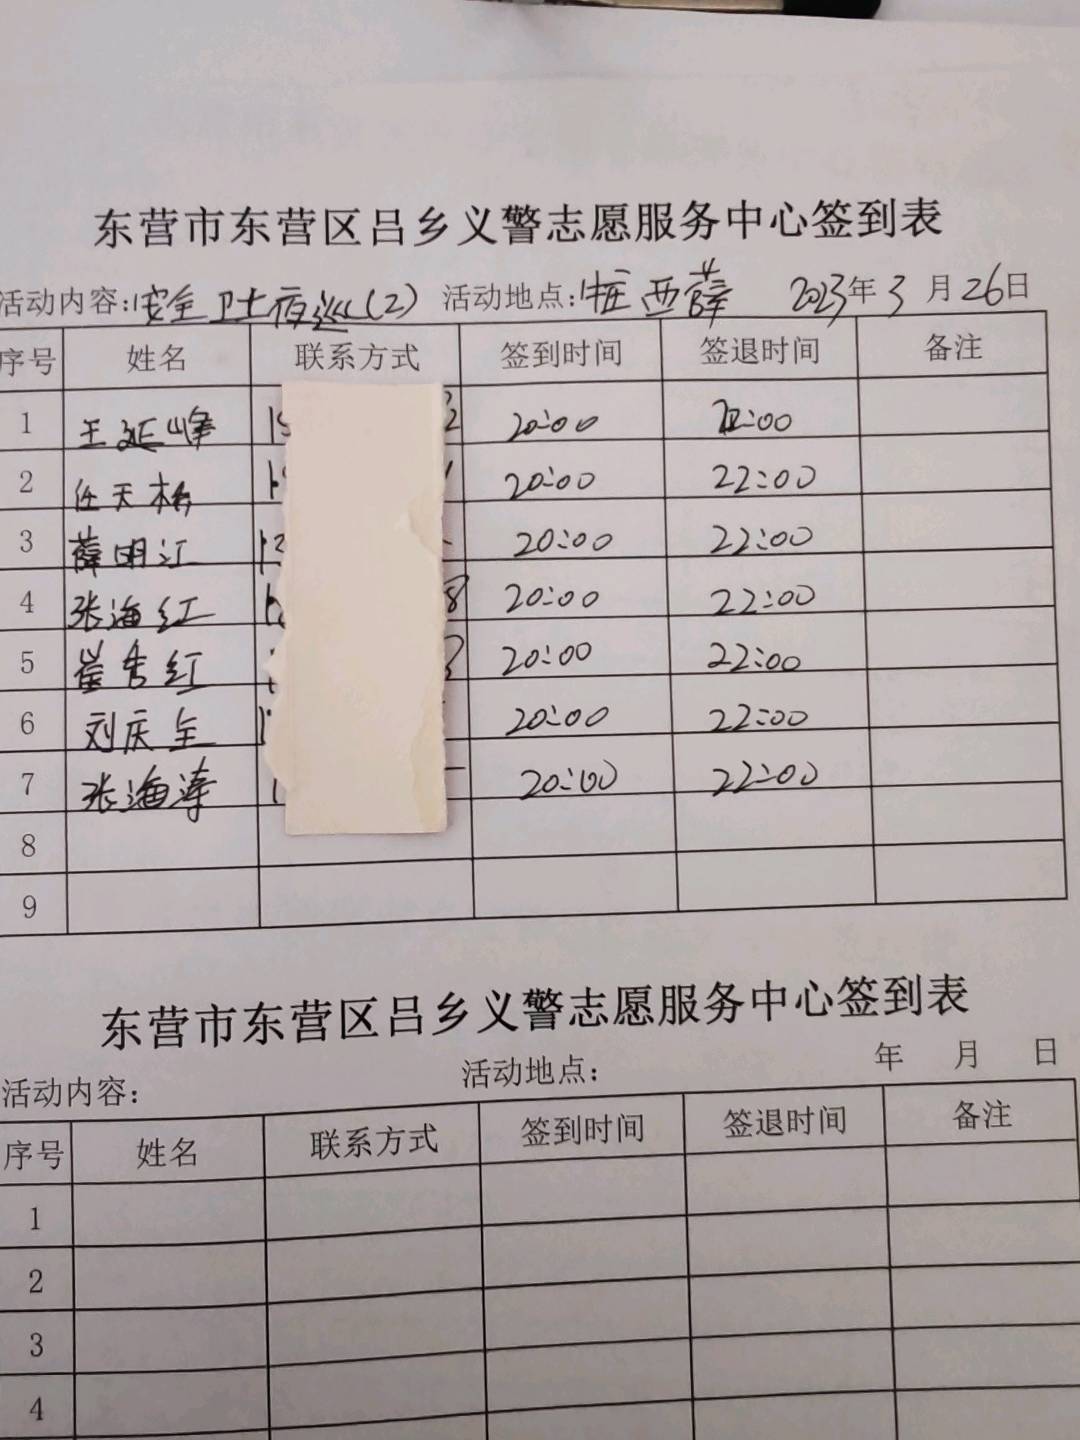 东营市东营区吕乡义警志愿服务中心签到表
活动内容:安全卫士夜巡(2) 活动地点:西薛 2023年3月26日
序号 姓名 联系方式 签到时间 签退时间 备注
1 王延峰 20:00 22:00
2 任天 20:00 22:00
3 薛明江 20:00 22:00
4 张海红 20:00 22:00
5 崔秀红 20:00 22:00
6 刘庆全 20:00 22:00
7 张海涛 20:00 22:00
8
9
东营市东营区吕乡义警志愿服务中心签到表
活动内容: 活动地点: 年 月 日
序号 姓名 联系方式 签到时间 签退时间 备注
1
2
3
4